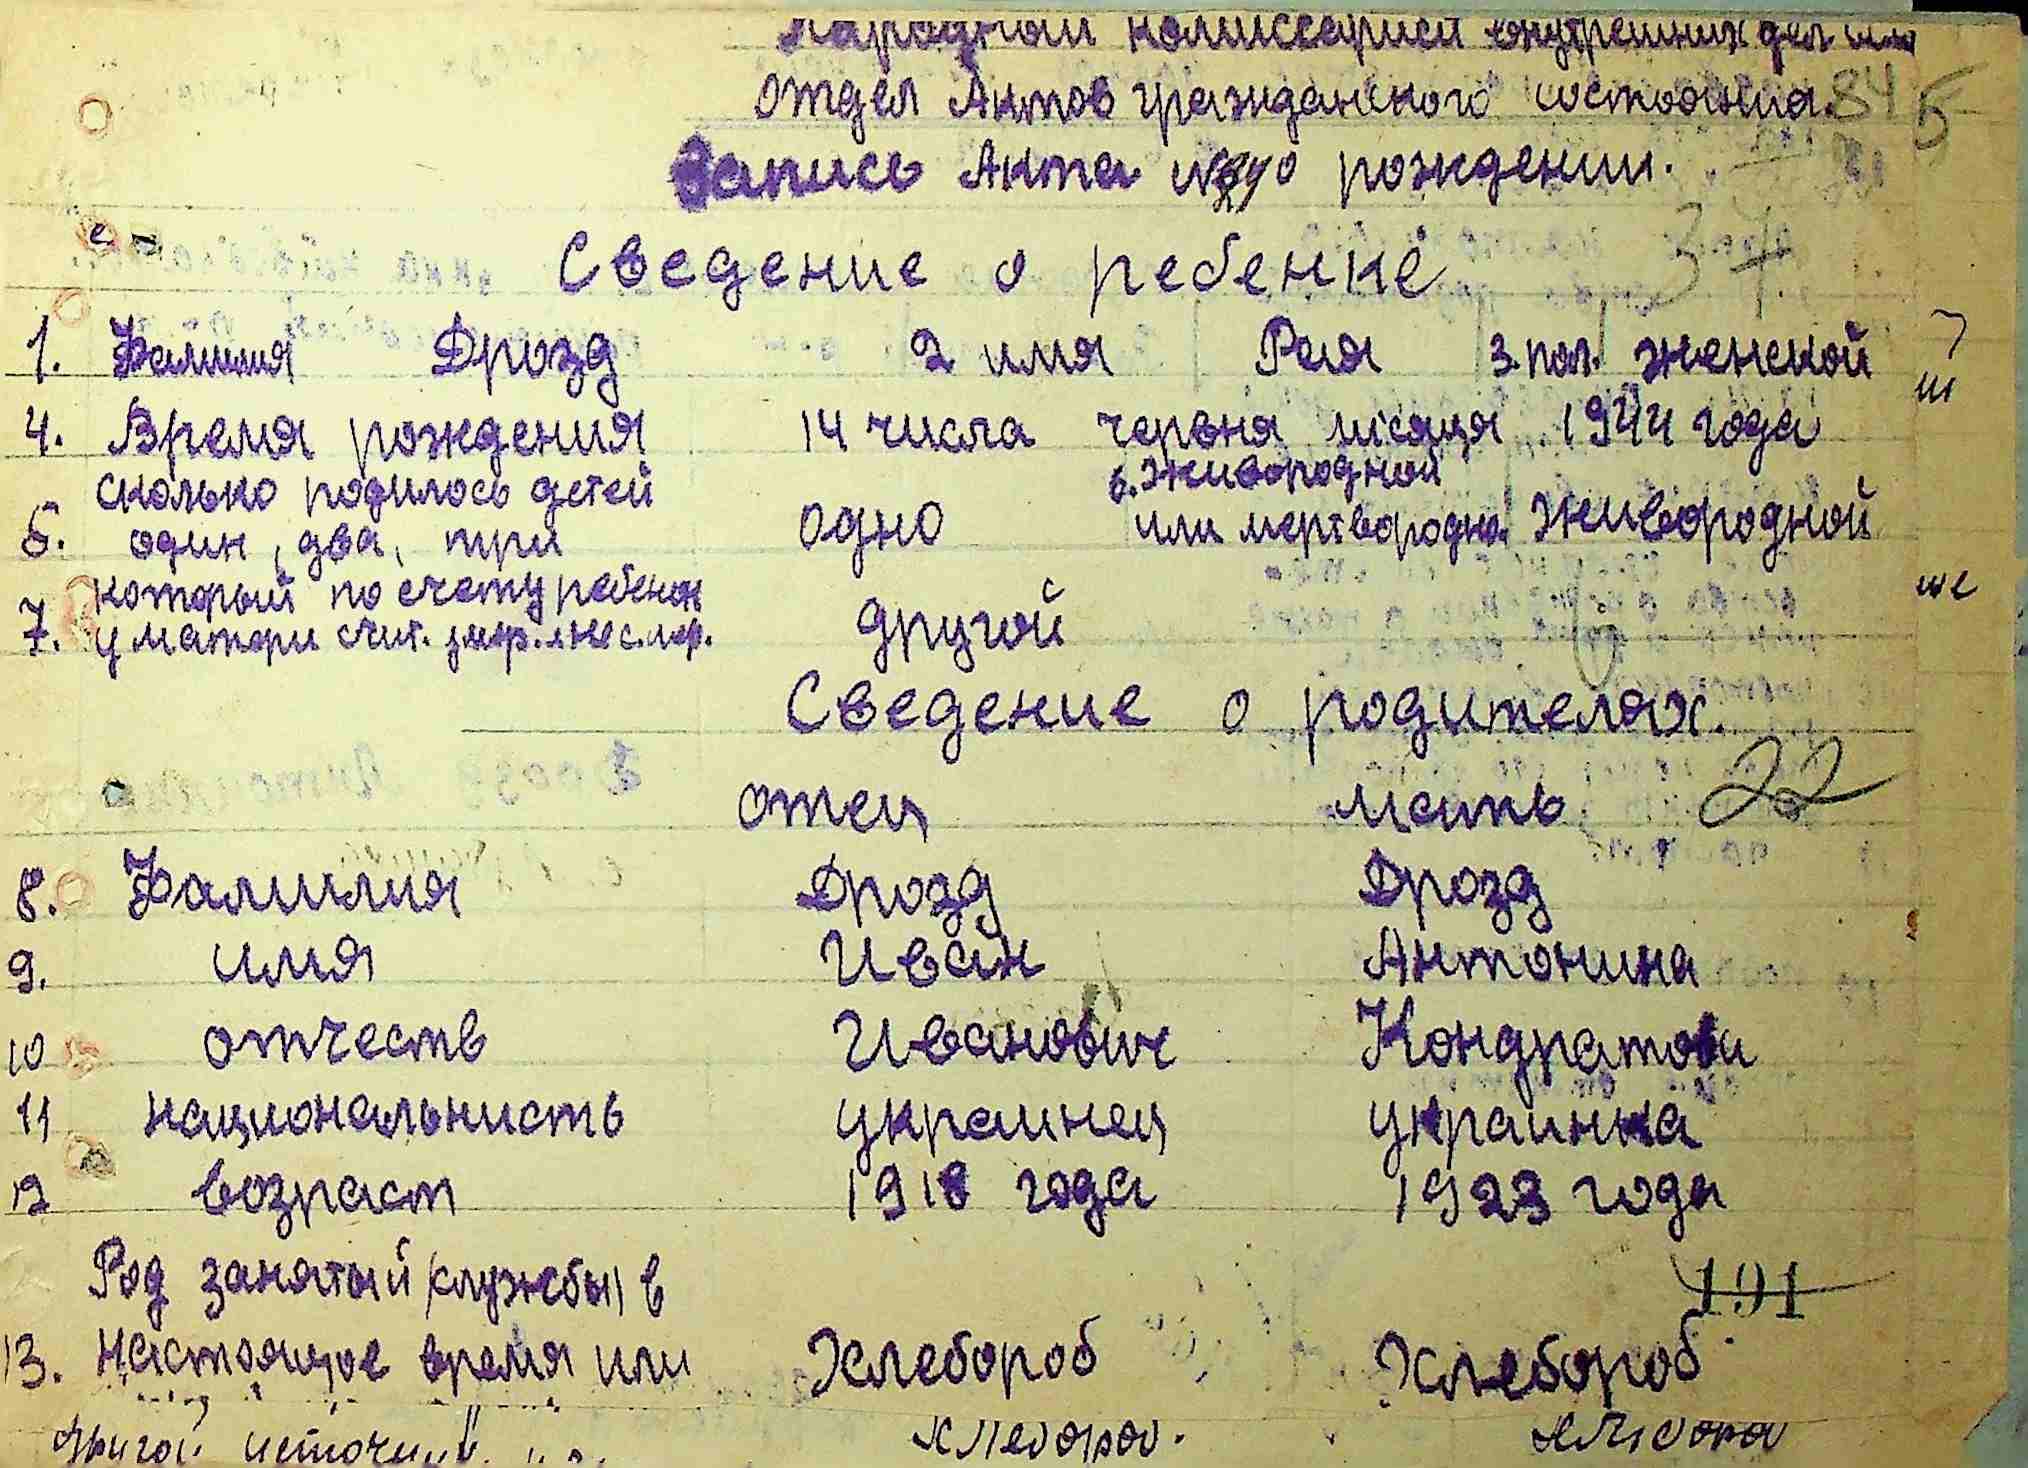 Народный комиссариат внутренних дел
отдел Актов гражданского состояния. 84 5
Запись Акта о рождении.
Сведение о ребенке 34
1. Фамилия Дрозд 2 имя Рая 3. пол. женской
4. Время рождения 14 числа червня місяця 1944 года
сколько родилось детей 6. живородной
5. один, два, три одно или мертвородной живородной
который по счету ребенок
7. у матери счит. умер. другой
Сведение о родителях.
отец мать 22
8. Фамилия Дрозд Дрозд
9. имя Иван Антонина
10 отчеств Иванович Кондратови
11 национальнисть украинец украинка
12 возраст 1918 года 1923 года
Род занятый (службы) в 191
13. настоящое время или Хлебороб Хлебороб
другой источник